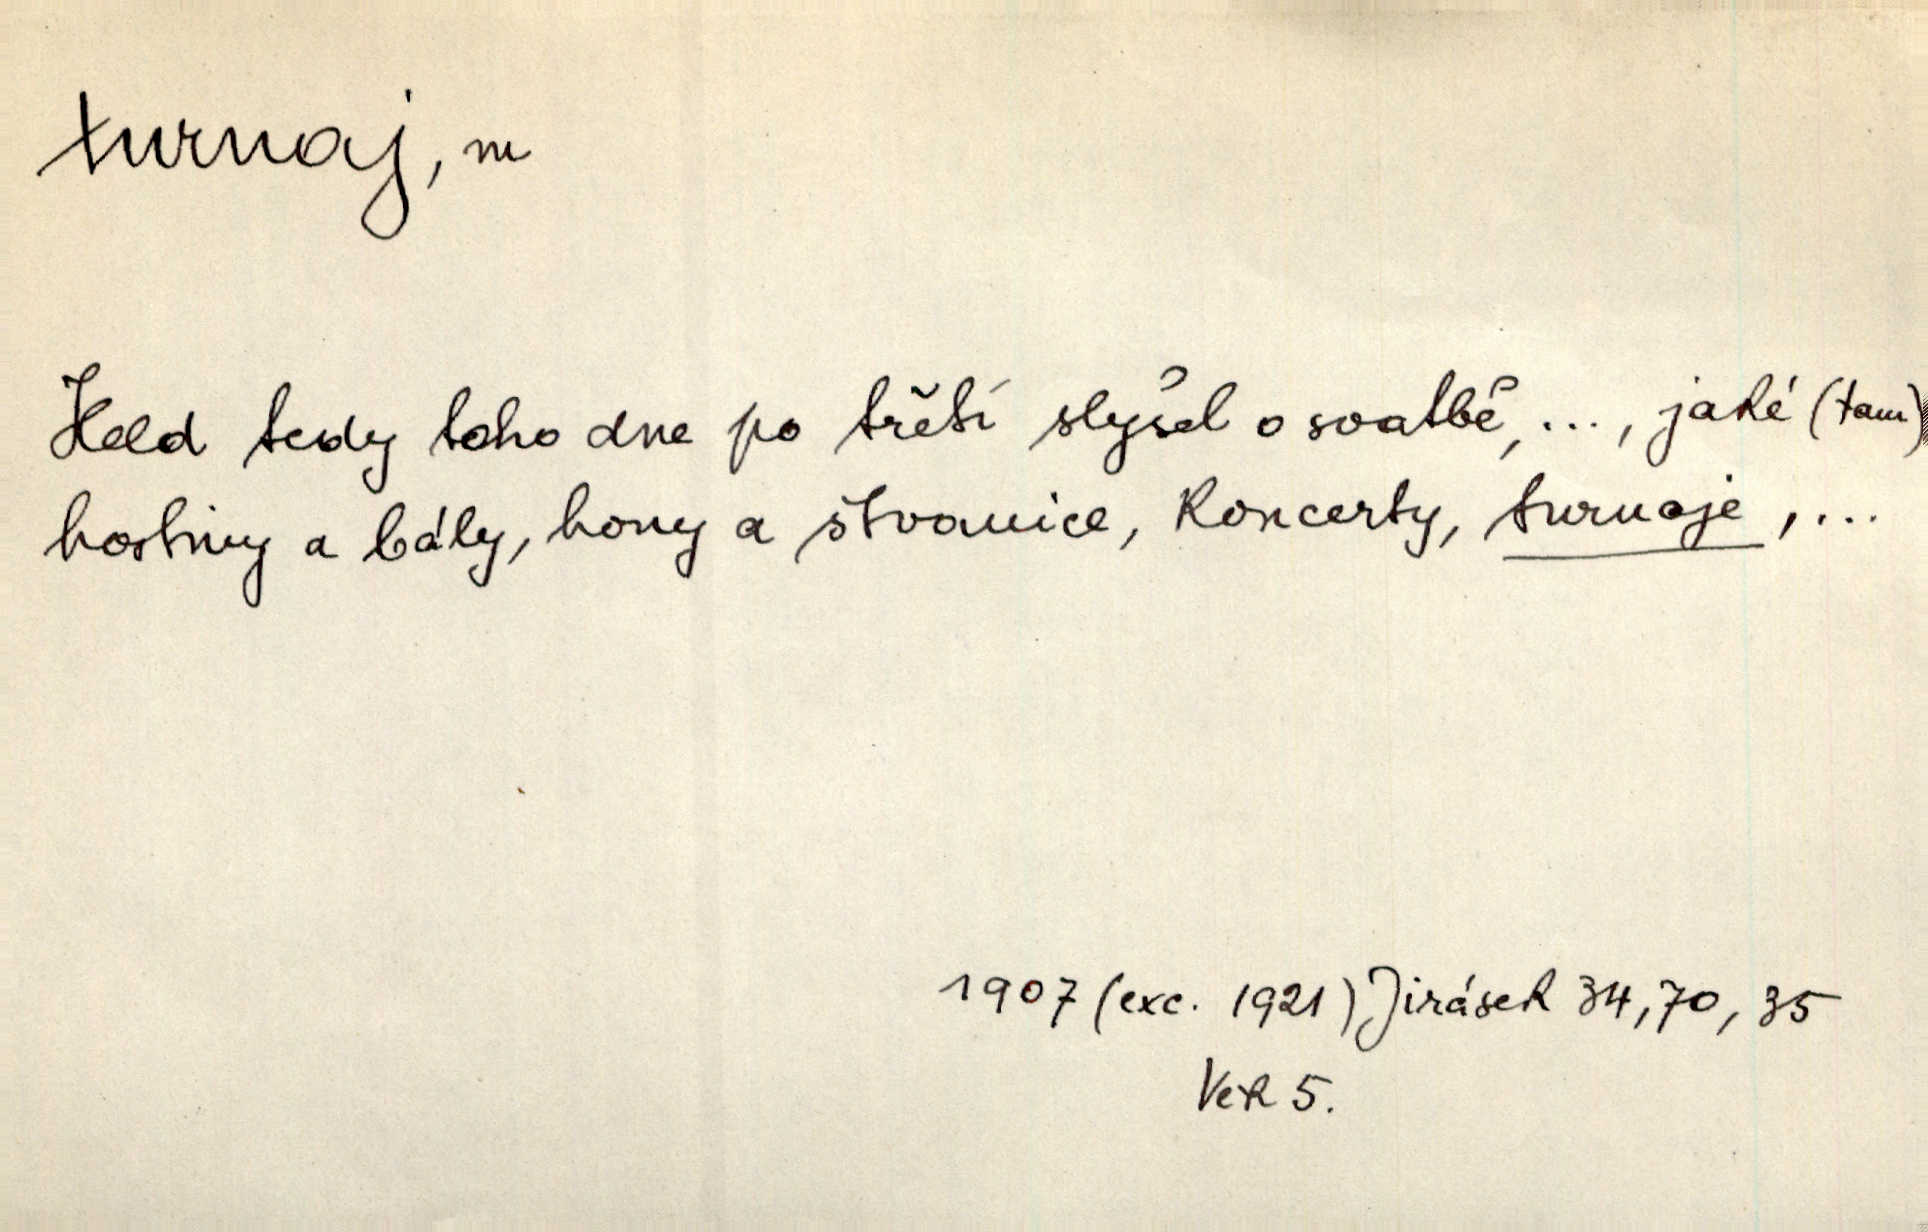 turnaj, m
Held tedy toho dne po třetí slyšel o svatbě, ..., jaké (tam)
hostiny a bály, hony a štvanice, koncerty, turnaje, ...
1907 (exc. 1921) Jirásek 34, 70, 35
Vek 5.